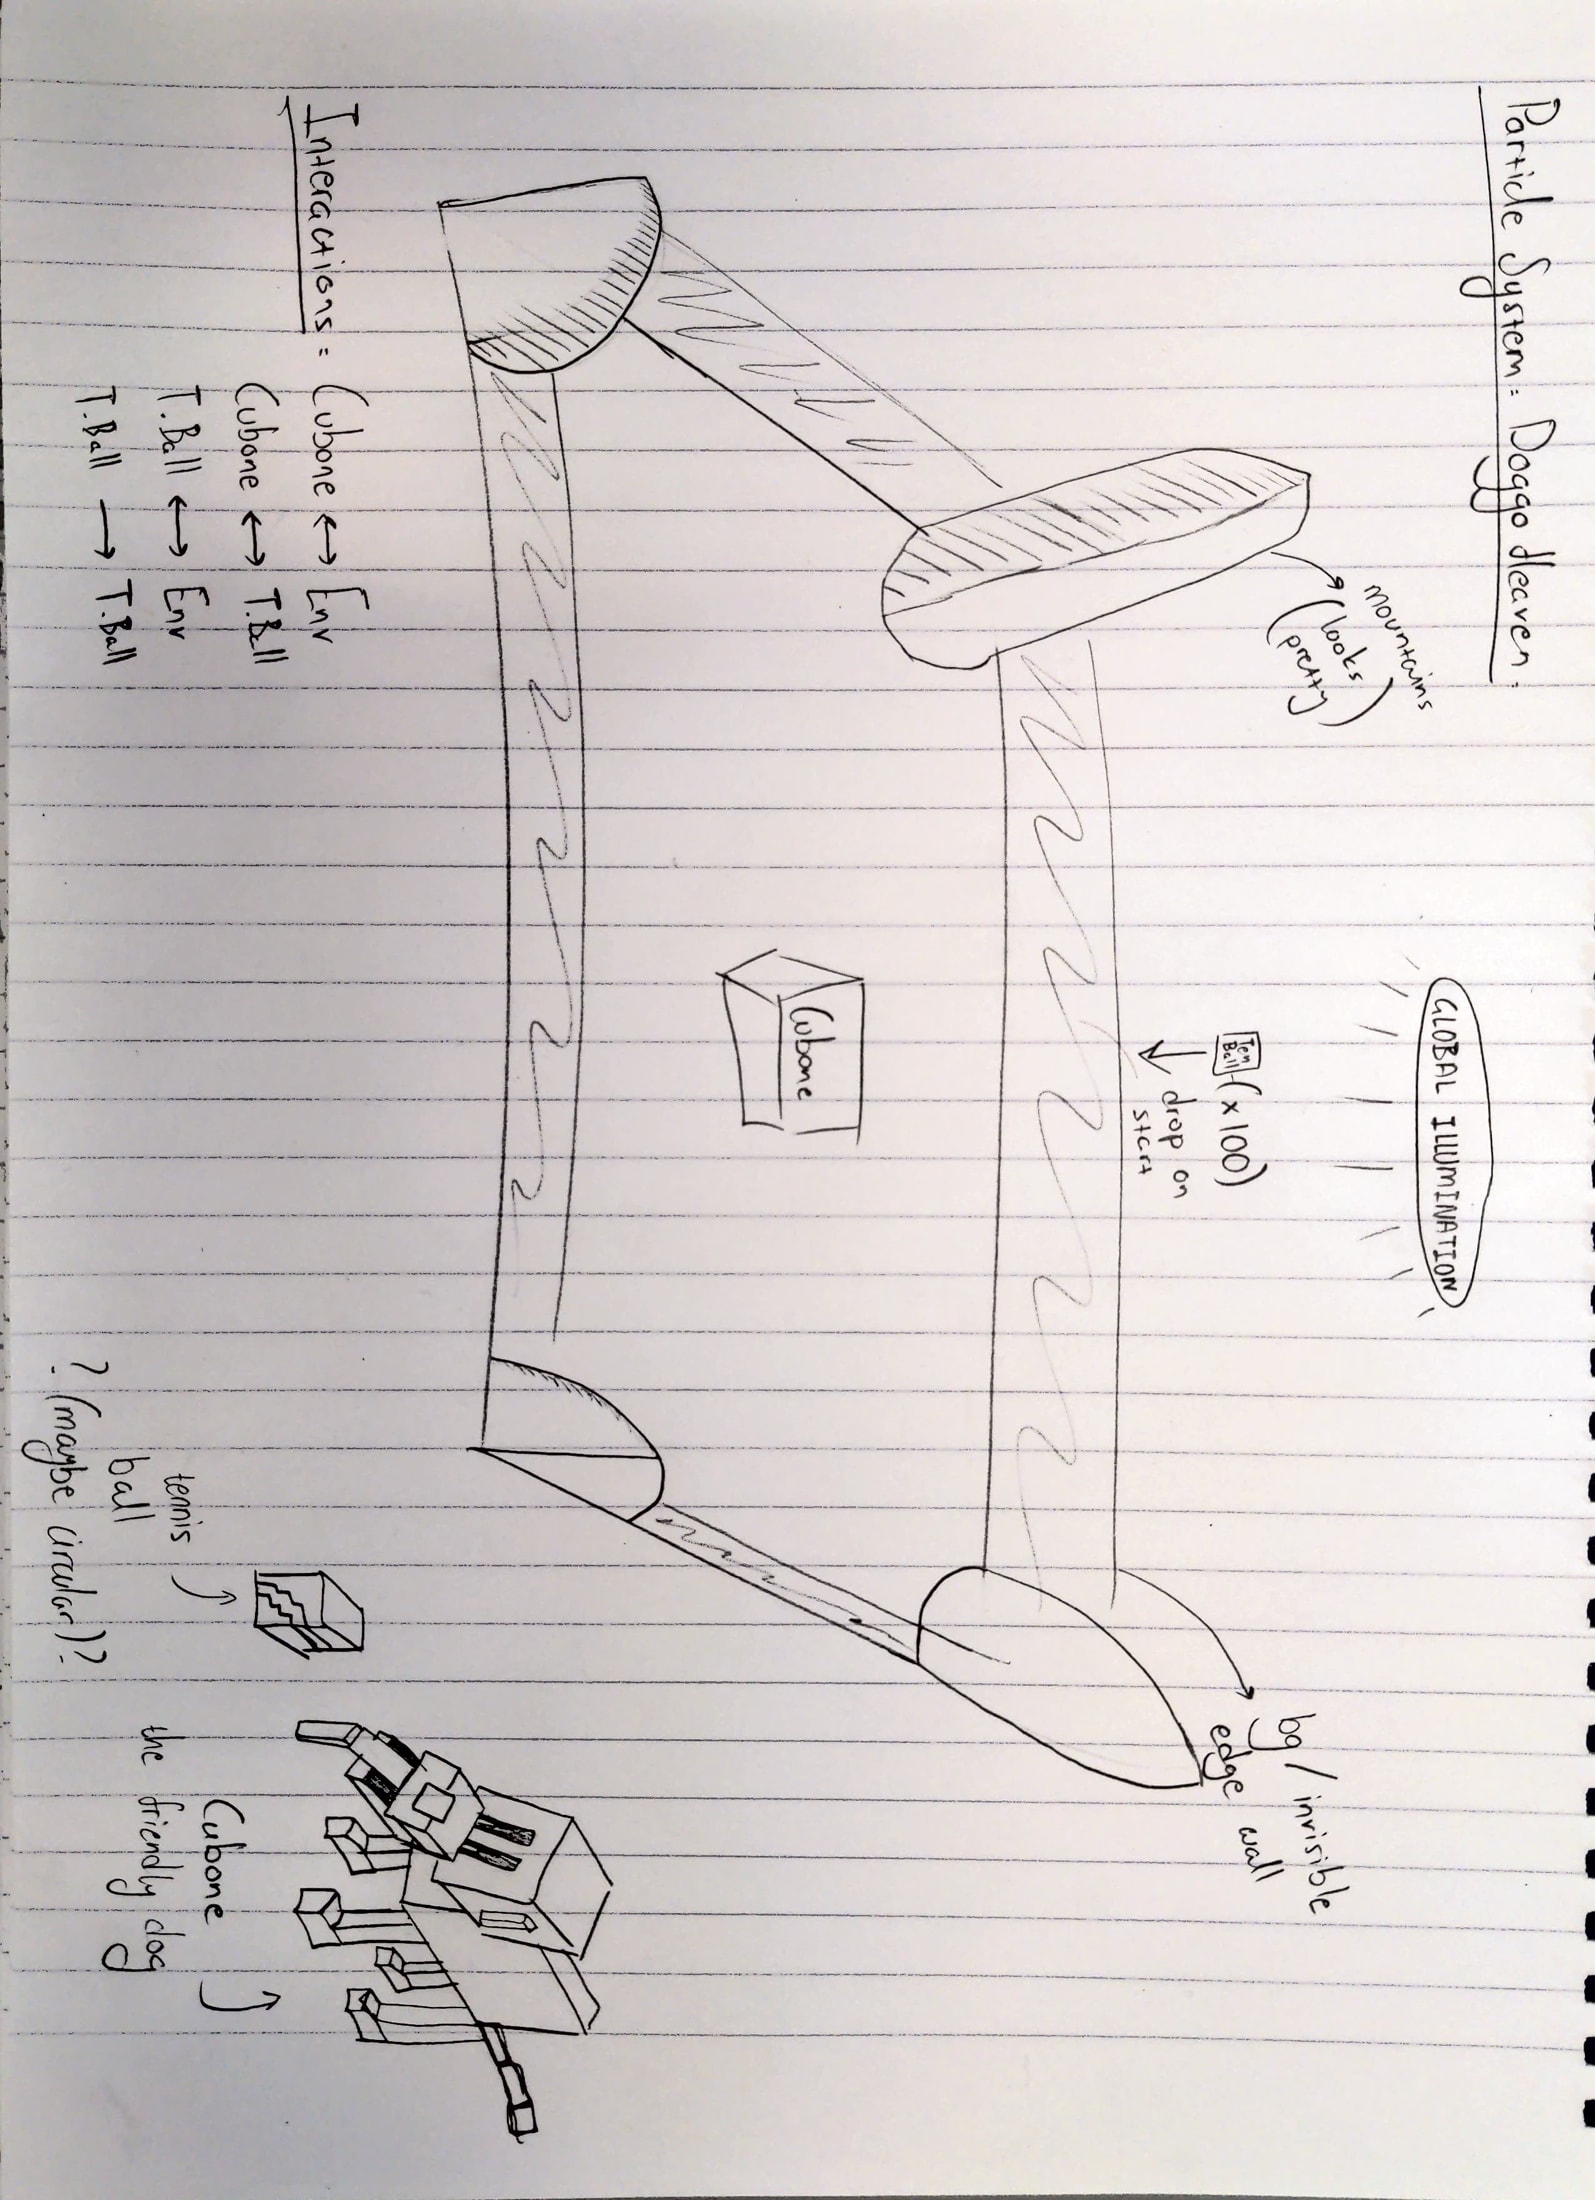 Particle System: Doggo Heaven.
GLOBAL ILLUMINATION
mountains
(looks
pretty)
bg / invisible
edge wall
Ten
Ball
(x100)
drop on
start
Cubone
Interactions: Cubone ↔ Env
Cubone ↔ T.Ball
T.Ball ↔ Env
T.Ball → T.Ball
tennis
ball
? (maybe circular)?
Cubone
the friendly dog